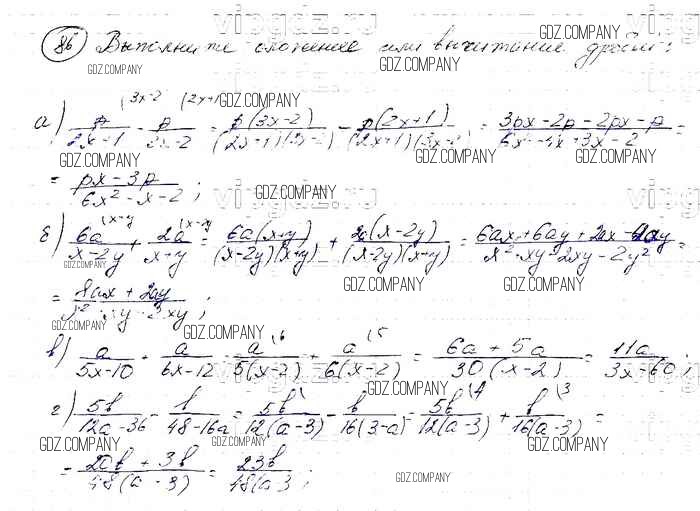 86 Выполните сложение или вычитание дробей:
а) p/(2x+1) - p/(3x-2) = p(3x-2)/((2x+1)(3x-2)) - p(2x+1)/((2x+1)(3x-2)) = (3px-2p-2px-p)/(6x²-4x+3x-2) =
= (px-3p)/(6x²-x-2);
б) 6a/(x-2y) + 2a/(x+y) = 6a(x+y)/((x-2y)(x+y)) + 2a(x-2y)/((x-2y)(x+y)) = (6ax+6ay+2ax-4ay)/(x²+xy-2xy-2y²) =
= (8ax+2ay)/
в) a/(5x-10) + a/(6x-12) = a/(5(x-2)) + a/(6(x-2)) = (6a+5a)/(30(x-2)) = 11a/(3x-60);
г) 5b/(12a-36) - b/(48-16a) = 5b/(12(a-3)) - b/(16(3-a)) = 5b/(12(a-3)) + b/(16(a-3)) =
= (20b+3b)/(48(a-3)) = 23b/(48(a-3);
GDZ.COMPANY